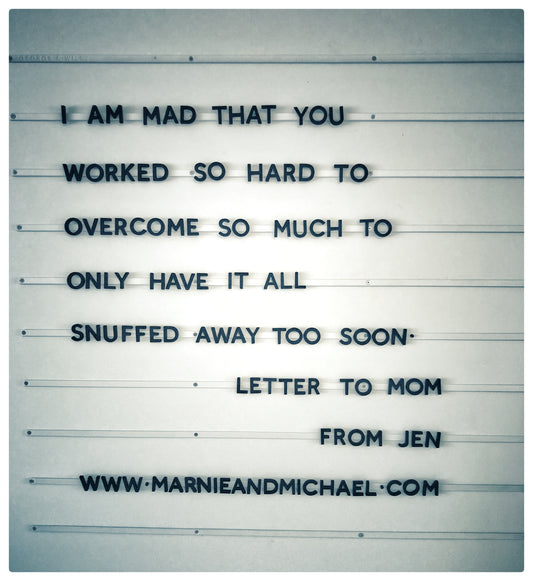 I AM MAD THAT YOU
WORKED SO HARD TO
OVERCOME SO MUCH TO
ONLY HAVE IT ALL
SNUFFED AWAY TOO SOON·
LETTER TO MOM
FROM JEN
WWW·MARNIEANDMICHAEL·COM